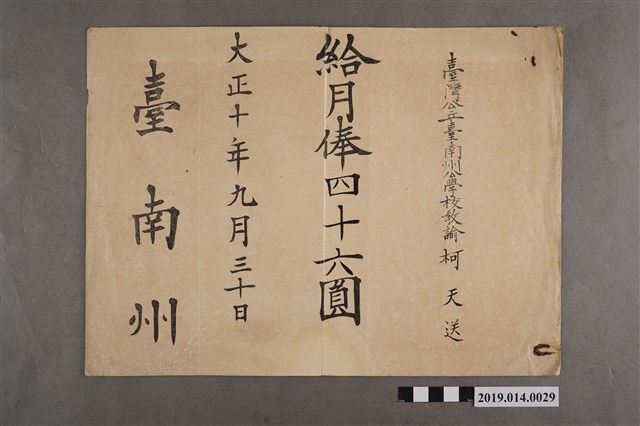 臺灣公立臺南州公學校教諭 柯天送
給月俸四十六圓
大正十年九月三十日
臺南州
2019.014.0029